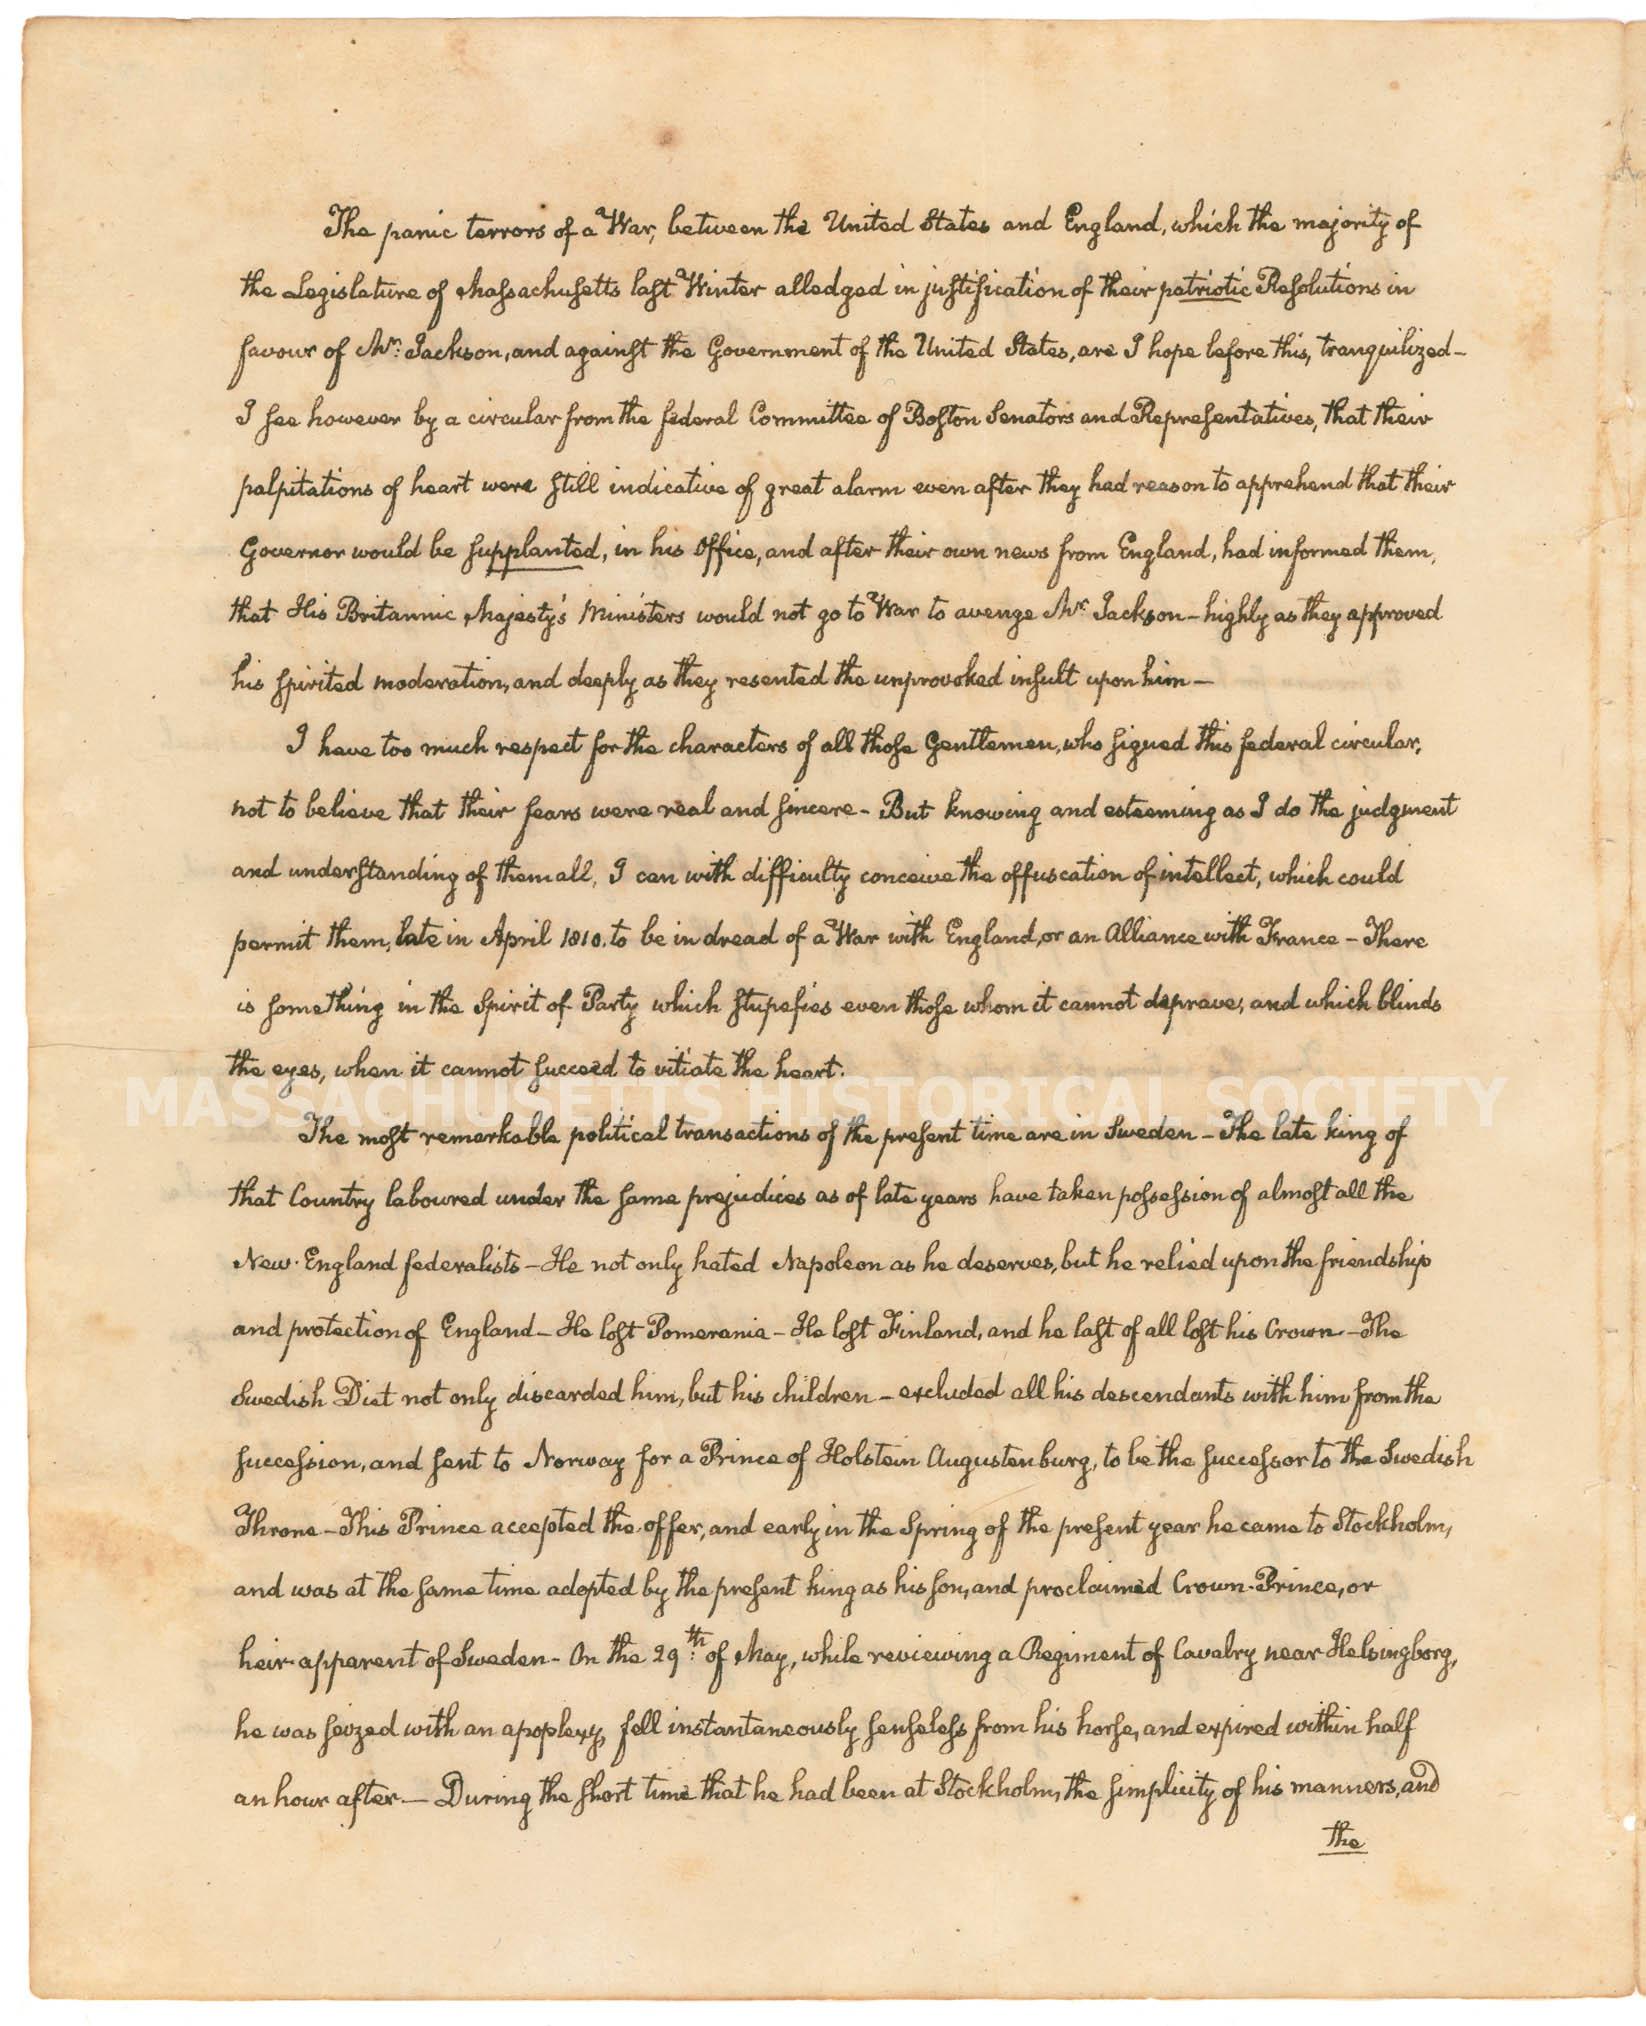 The panic terrors of a War, between the United States and England, which the majority of
the Legislature of Massachusetts last Winter alledged in justification of their patriotic Resolutions in
favour of Mr: Jackson, and against the Government of the United States, are I hope before this, tranquilized—
I see however by a circular from the federal Committee of Boston Senators and Representatives, that their
palpitations of heart were still indicative of great alarm even after they had reason to apprehend that their
Governor would be supplanted, in his Office, and after their own news from England, had informed them,
that His Britannic Majesty's Ministers would not go to War to avenge Mr. Jackson—highly as they approved
his spirited moderation, and deeply as they resented the unprovoked insult upon him—
I have too much respect for the characters of all those Gentlemen, who signed this federal circular,
not to believe that their fears were real and sincere—But knowing and esteeming as I do the judgment
and understanding of them all, I can with difficulty conceive the offuscation of intellect, which could
permit them, late in April 1810. to be in dread of a War with England, or an Alliance with France—There
is something in the Spirit of Party which stupefies even those whom it cannot deprave, and which blinds
the eyes, when it cannot succeed to vitiate the heart.
MASSACHUSETTS HISTORICAL SOCIETY
The most remarkable political transactions of the present time are in Sweden—The late king of
that Country laboured under the same prejudices as of late years have taken possession of almost all the
New-England federalists—He not only hated Napoleon as he deserves, but he relied upon the friendship
and protection of England—He lost Pomerania—He lost Finland, and he last of all lost his Crown—The
Swedish Diet not only discarded him, but his children—excluded all his descendants with him from the
succession, and sent to Norway for a Prince of Holstein Augustenburg, to be the successor to the Swedish
Throne—This Prince accepted the offer, and early in the Spring of the present year he came to Stockholm,
and was at the same time adopted by the present king as his son, and proclaimed Crown-Prince, or
heir-apparent of Sweden—On the 29th: of May, while reviewing a Regiment of Cavalry near Helsingborg,
he was seized with an apoplexy, fell instantaneously senseless from his horse, and expired within half
an hour after—During the short time that he had been at Stockholm, the simplicity of his manners, and
the